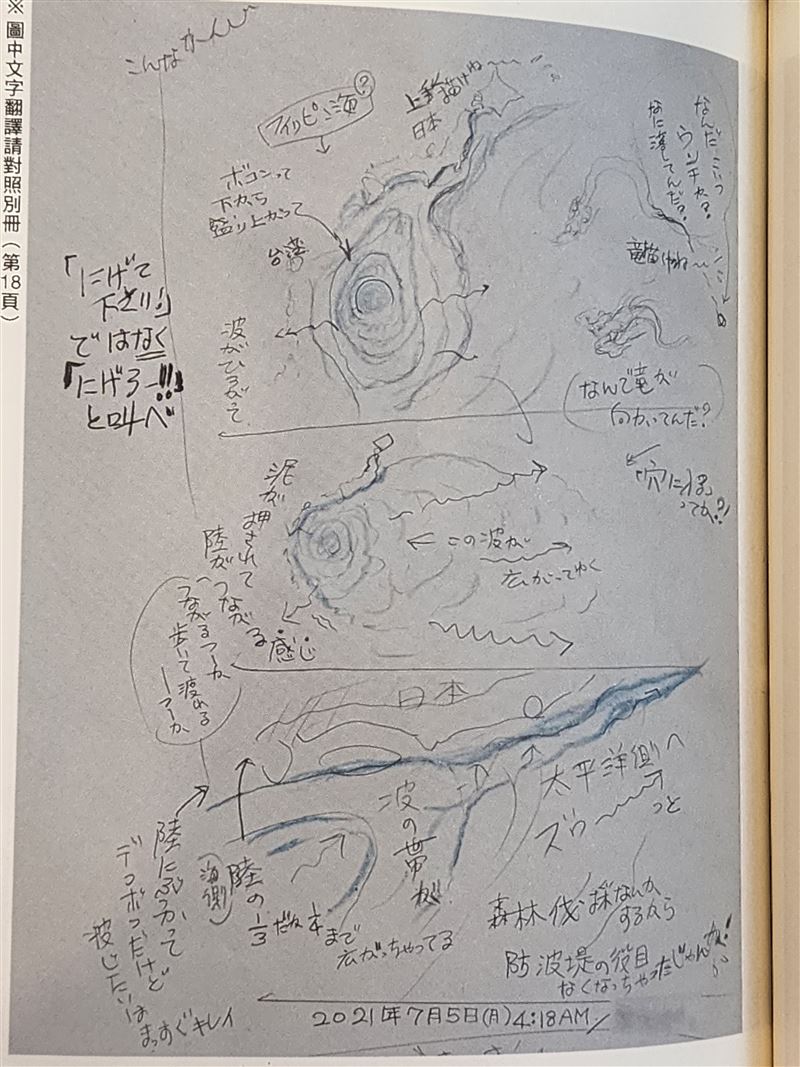 ※圖中文字翻譯請對照別冊（第18頁）
こんなかんじ
フィリピン海？
上手く描けね〜
日本
ボコンって
下から
盛り上がって
台湾
「にげて
下さい！」
ではなく
「にげろー!!」
と叫べ
波がひろがって
なんだ こいつ
ウンチャ？
なに落してんだ？
竜描けね〜
なんで竜が
向かってんだ？
泥が押されて
陸がつながる
感じ
つながるつーか
歩いて渡れる
つーか
この波が
広がってゆく
日本
太平洋側へ
ズゥ〜っと
波の帯が
陸にぶつかって
デコボコだけど
波じたいは
まっすぐキレイ
海側
陸の
1/3だね 1/4まで
広がっちゃってる
森林伐採なんか
するから
防波堤の役目
なくなっちゃったじゃんか！
2021年7月5日(月)4:18AM/